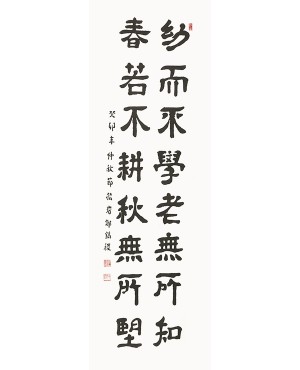 幼而不學老無所知
春若不耕秋無所望
癸卯年仲秋節